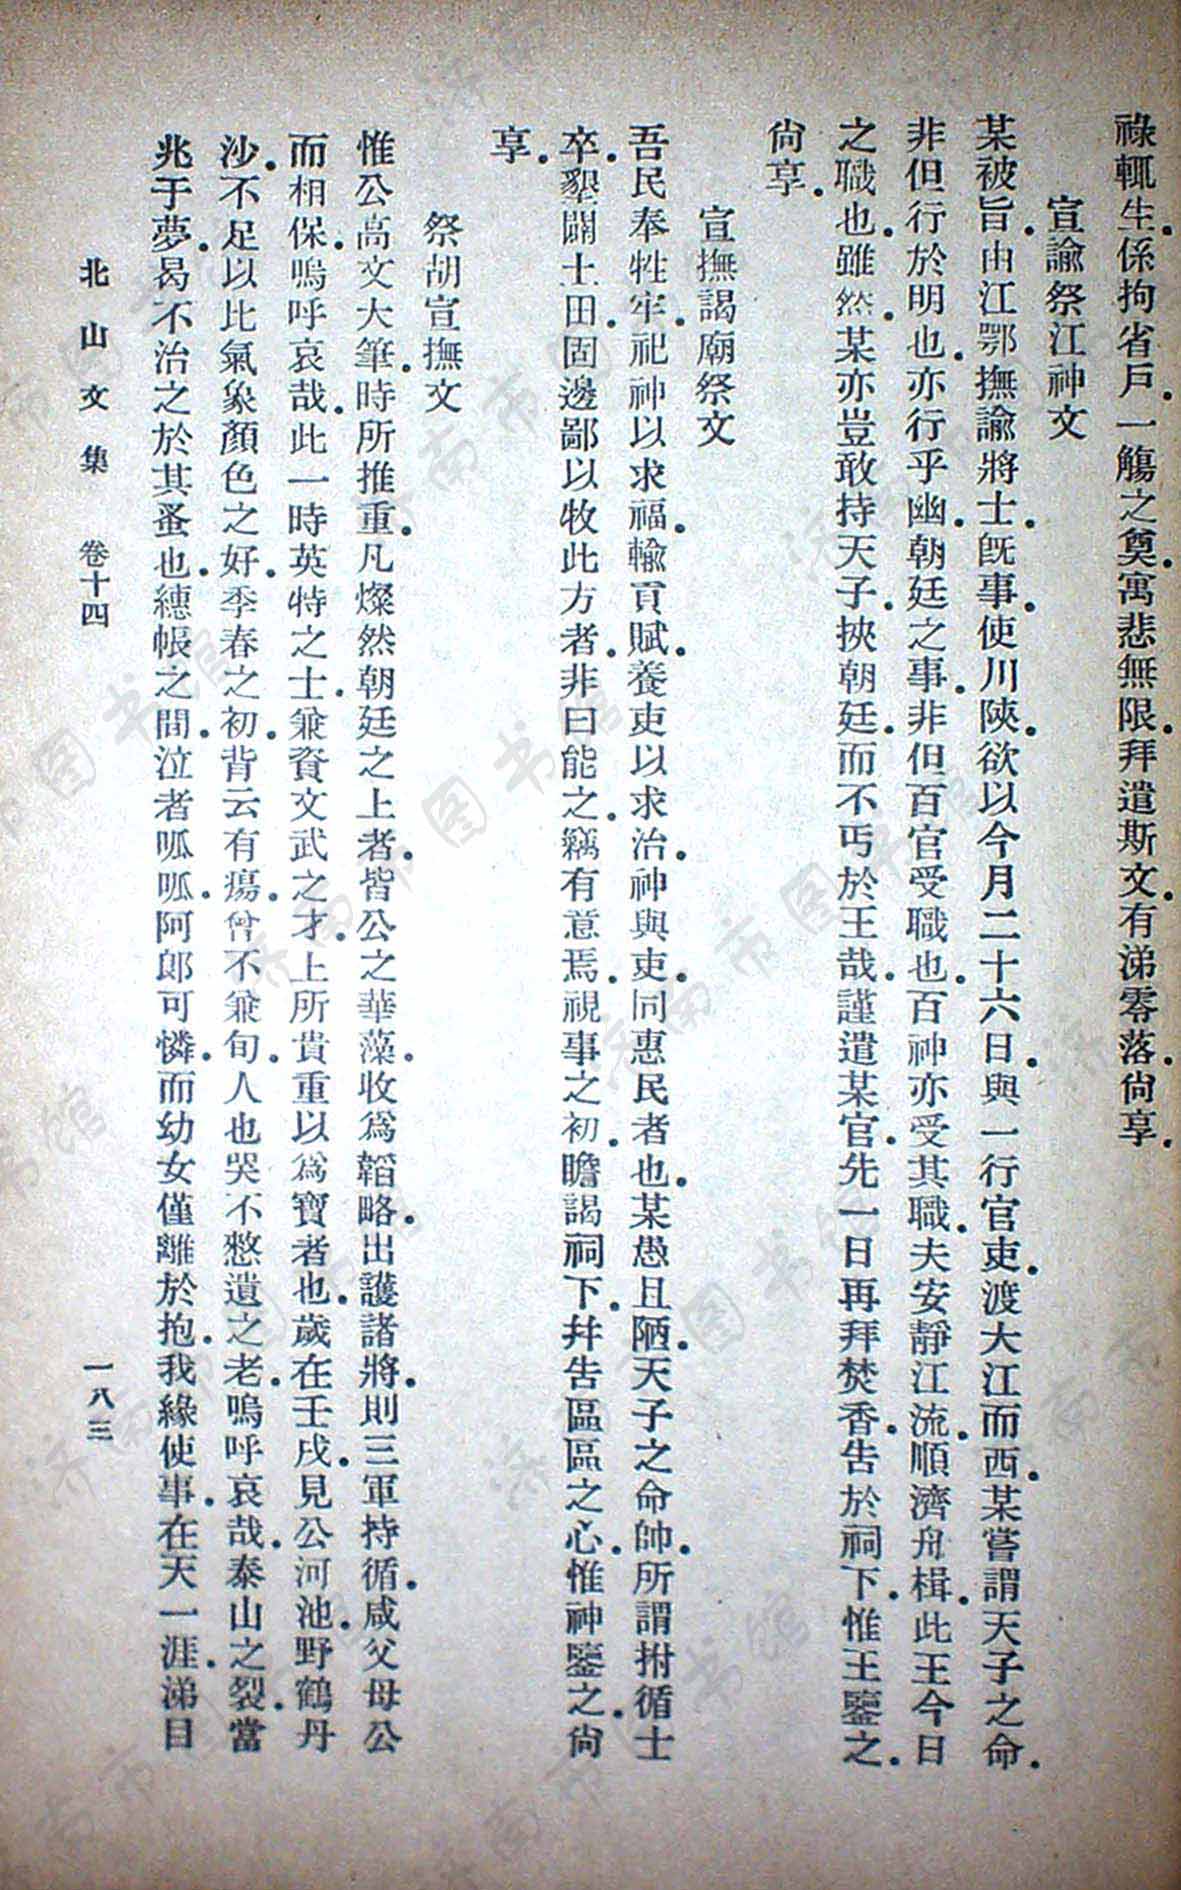 祿輒生。係拘省戶。一觴之奠。寓悲無限。拜遣斯文。有涕零落。尙享。
宣諭祭江神文
某被旨。由江鄂撫諭將士。旣事。使川陝。欲以今月二十六日。與一行官吏。渡大江而西。某嘗謂天子之命。
非但行於明也。亦行乎幽。朝廷之事。非但百官受職也。百神亦受其職。夫安靜江流。順濟舟楫。此王今日
之職也。雖然。某亦豈敢持天子。挾朝廷。而不丐於王哉。謹遣某官。先一日再拜焚香。告於祠下。惟王鑒之。
尙享。
宣撫謁廟祭文
吾民奉牲牢。祀神以求福。輸貢賦。養吏以求治。神與吏。同惠民者也。某愚且陋。天子之命帥。所謂拊循士
卒。墾闢土田。固邊鄙以牧此方者。非曰能之。竊有意焉。視事之初。瞻謁祠下。幷告區區之心。惟神鑒之。尙
享。
祭胡宣撫文
惟公高文大筆。時所推重。凡燦然朝廷之上者。皆公之華藻。收爲韜略。出護諸將。則三軍持循。咸父母公
而相保。嗚呼哀哉。此一時英特之士。兼資文武之才。上所貴重以爲寶者也。歲在壬戌。見公河池。野鶴丹
沙。不足以比氣象顏色之好。季春之初。背云有瘍。曾不兼旬。人也哭不憖遺之老。嗚呼哀哉。泰山之裂。當
兆于夢。曷不治之於其蚤也。繐帳之間。泣者呱呱。阿郎可憐。而幼女僅離於抱。我緣使事。在天一涯。涕目
北山文集 卷十四 一八三